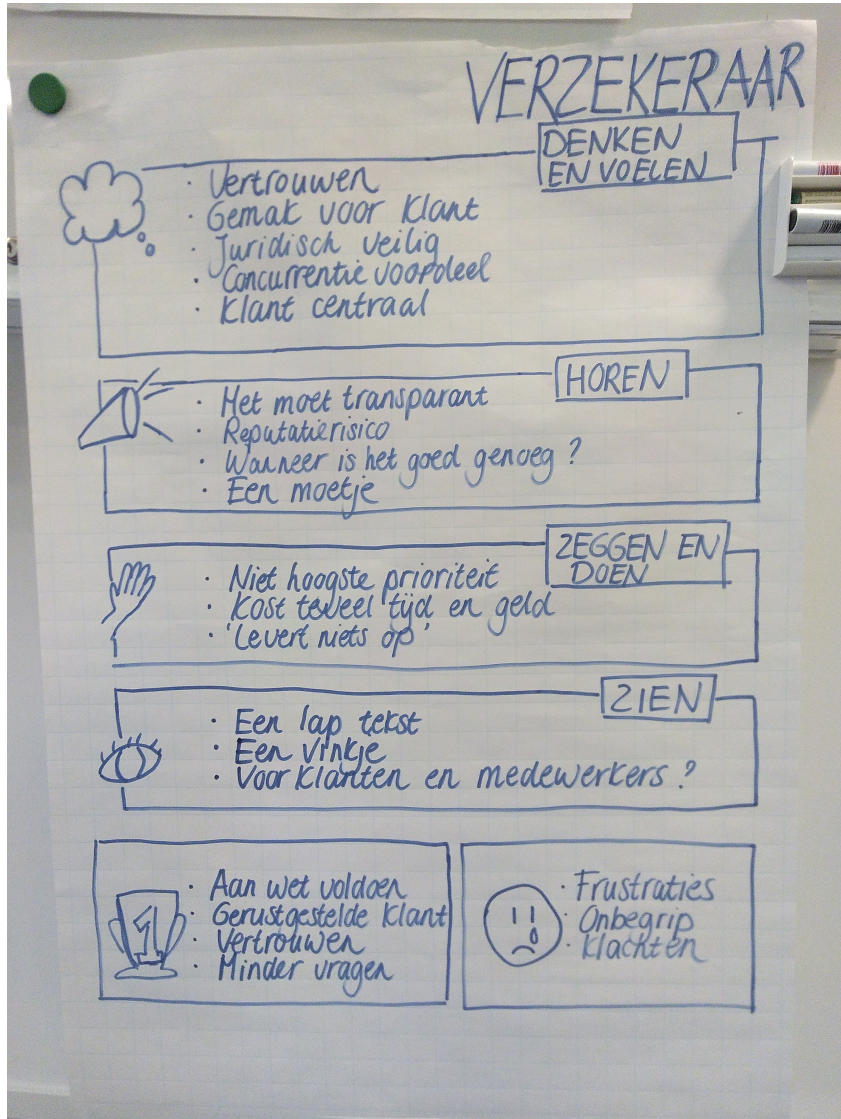 VERZEKERAAR
DENKEN
EN VOELEN
· Vertrouwen
· Gemak voor klant
· Juridisch veilig
· Concurrentie voordeel
· Klant centraal
HOREN
· Het moet transparant
· Reputatierisico
· Wanneer is het goed genoeg ?
· Een moetje
ZEGGEN EN
DOEN
· Niet hoogste prioriteit
· Kost teveel tijd en geld
· 'Levert niets op'
ZIEN
· Een lap tekst
· Een vinkje
· Voor klanten en medewerkers ?
1
· Aan wet voldoen
· Gerustgestelde klant
· Vertrouwen
· Minder vragen
· Frustraties
· Onbegrip
· Klachten